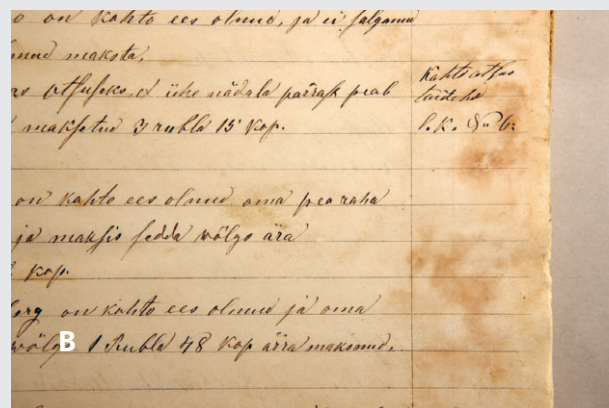 o on kohto ees olnud, ja ei salganud
nud maksta,
otsuseks et ühe nädala pärrast peab
maksetud 3 rubla 15 kop.
Kohtootsus
täidetud
l. k. No 6.
on kohto ees olnud oma pea raha
ja maksis sedda wölgo ära
kop.
erg on kohto ees olnud ja oma
wölg 1 Rubla 48 kop ärra maksnud.
B